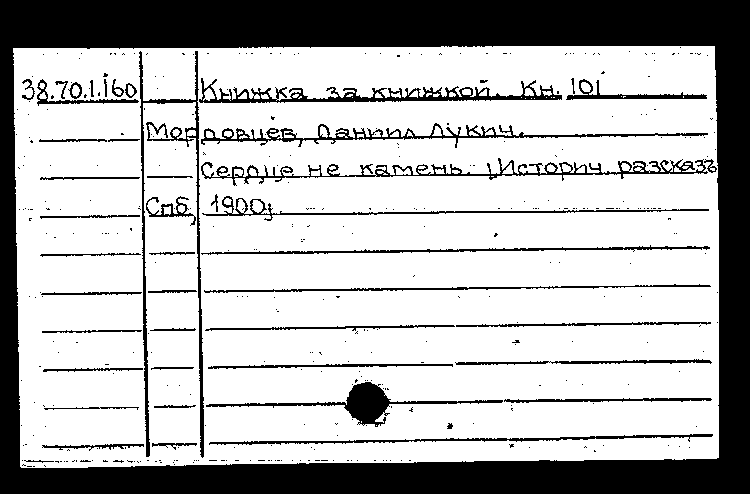 38.70.1.160 Книжка за книжкой. Кн. 101
Мордовцев, Даниил Лукич.
Сердце не камень. [Историч. разсказъ
Спб, 1900].